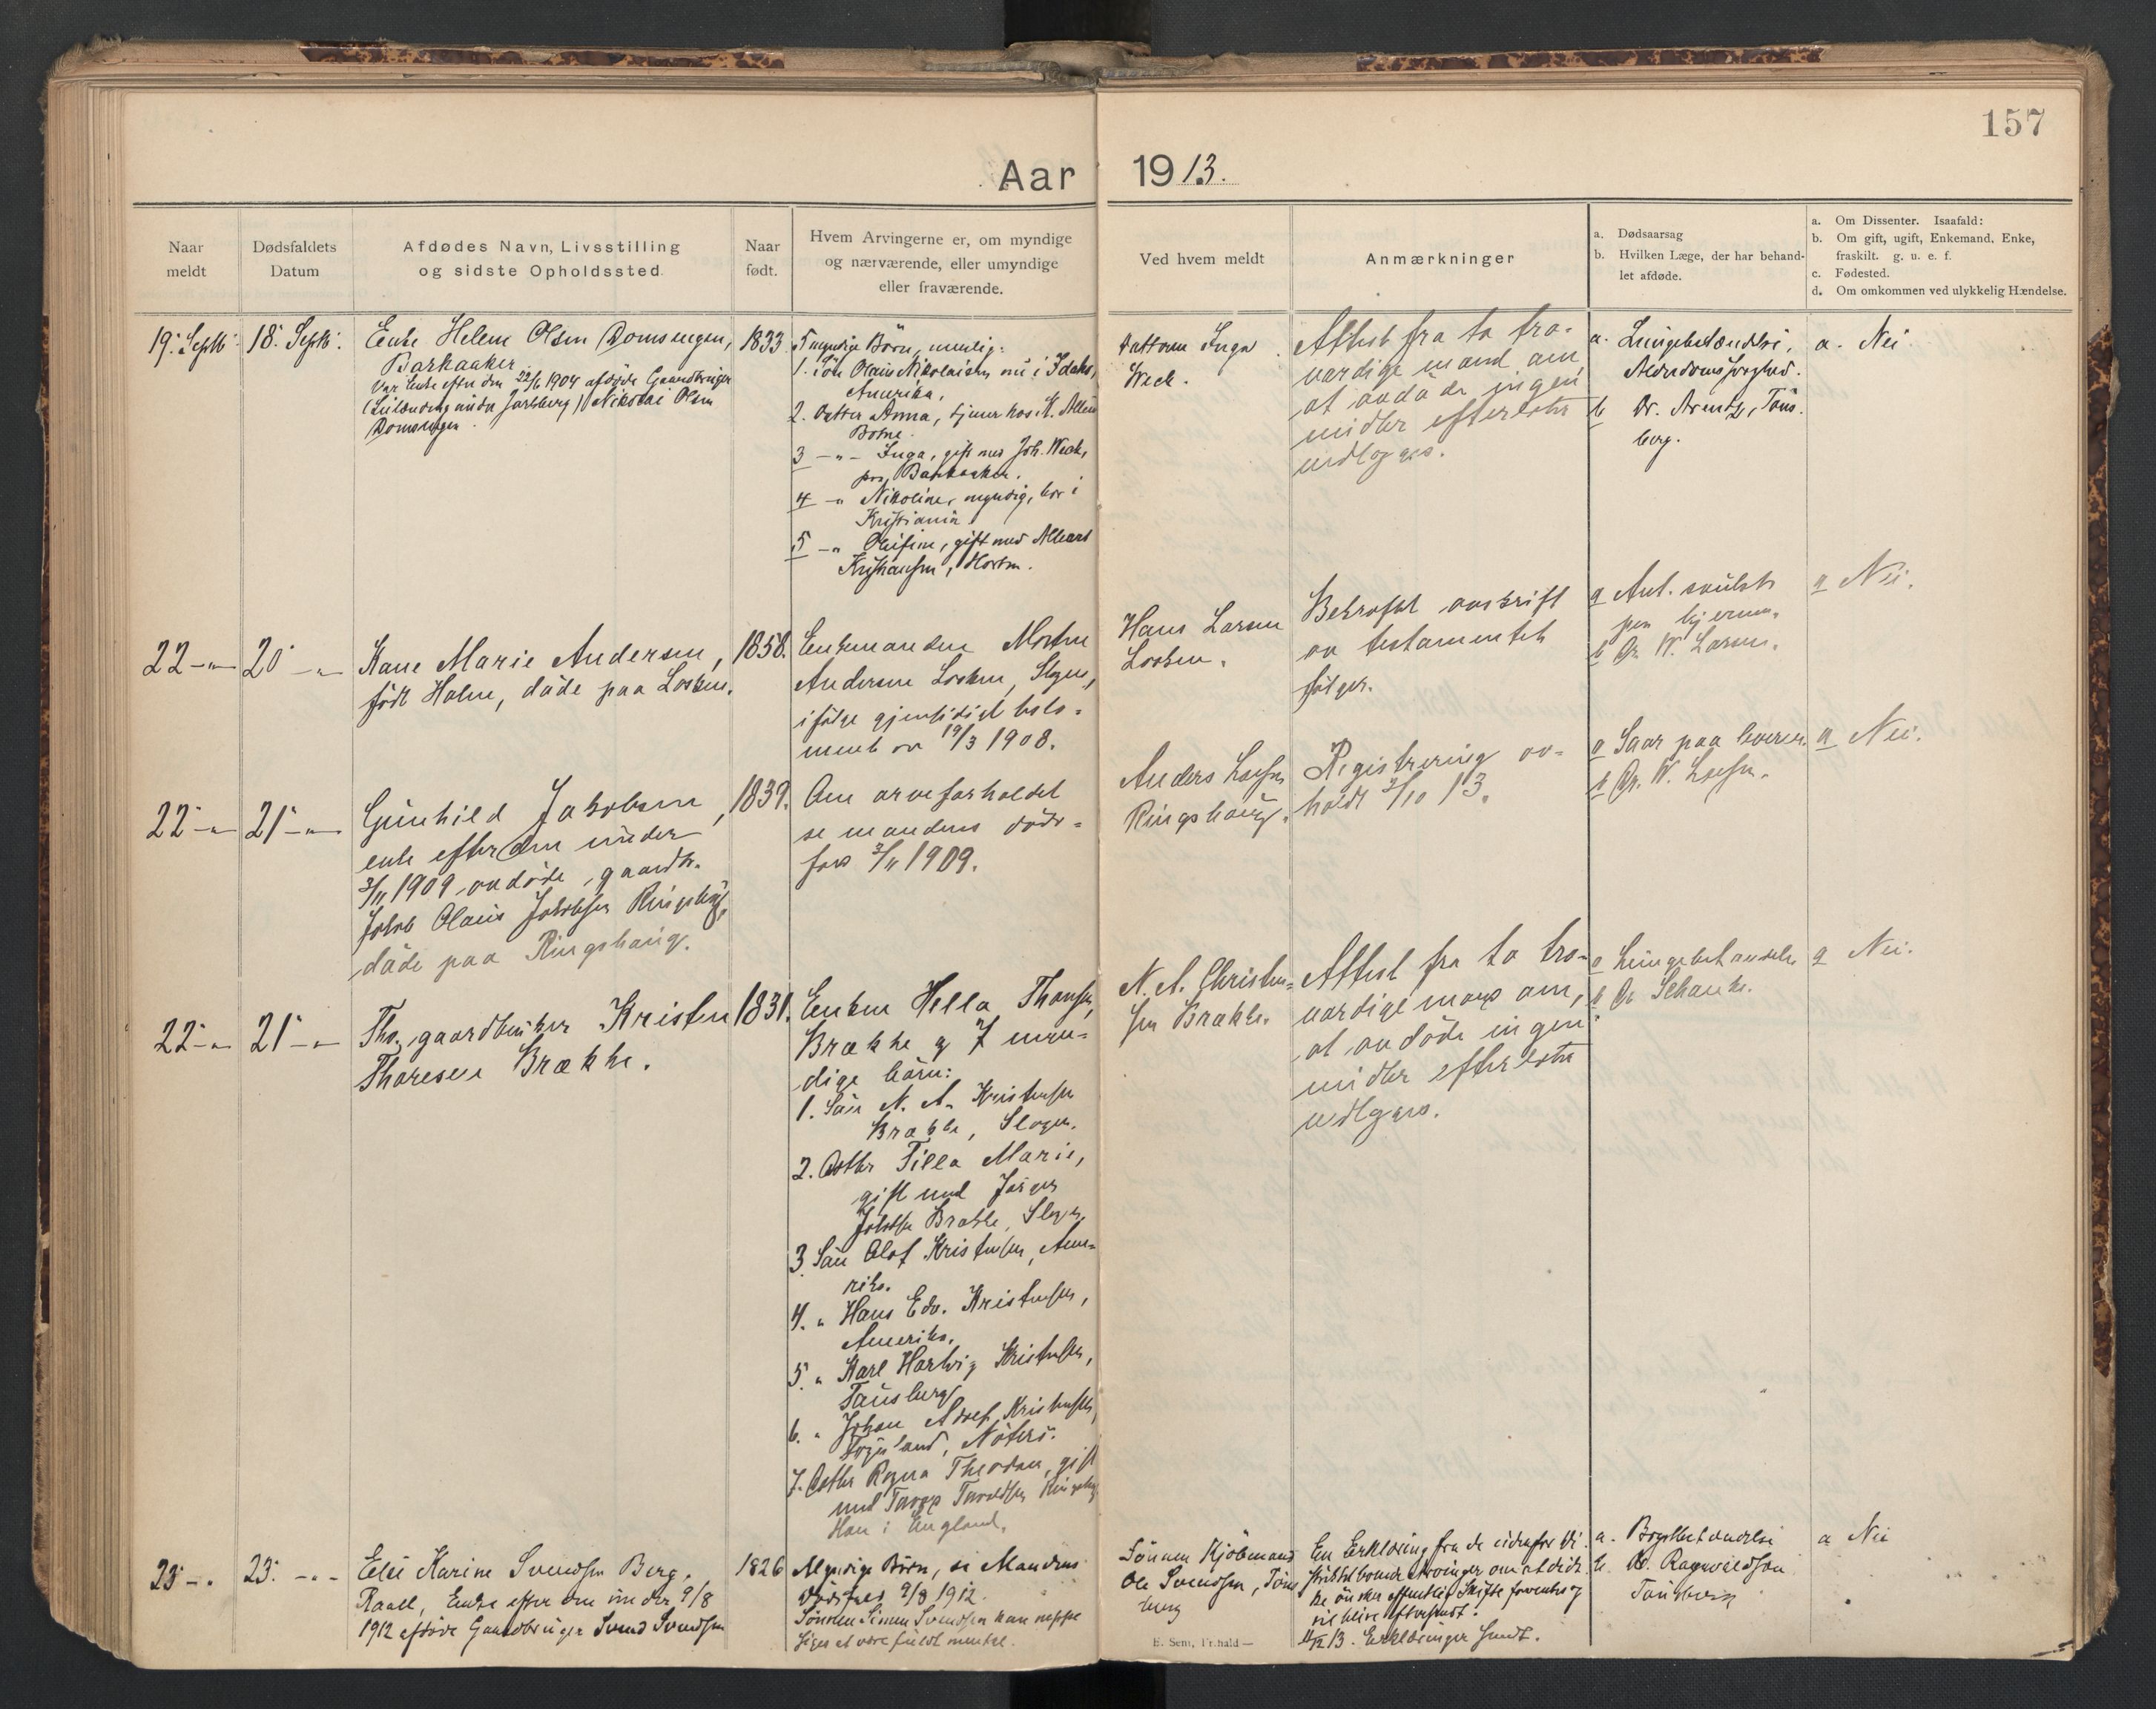 157
Aar 1913.
Naar
meldt
Dødsfaldets
Datum
Afdødes Navn, Livsstilling
og sidste Opholdssted.
Naar
født.
Hvem Arvingerne er, om myndige
og nærværende, eller umyndige
eller fraværende.
Ved hvem meldt
Anmærkninger
a. Dødsaarsag
b. Hvilken Læge, der har behand-
let afdøde.
a. Om Dissenter. Isaafald:
b. Om gift, ugift, Enkemand, Enke,
fraskilt. g. u. e. f.
c. Fødested.
d. Om omkommen ved ulykkelig Hændelse.
19. Septb.
18. Septb.
Enke Helene Olsen Domsengen,
Barkaaker
Var Enke efter den 22/6 1904 afdøde Gaardbruger
(Leilænding under Jarlsberg) Nikolai Olsen
Domsengen.
1833
5 myndige Börn, nemlig:
1. Sön Olaus Nikolaisen nu i Idaho,
Amerika,
2. Datter Anna, tjener hos
Botne.
3 -"- Inga, gift med Joh. Weck,
Barkaaker.
4 -" Nikoline, myndig, bor i
Kristiania
5 -" gift med
Kristiansen, Horten.
Datteren Inga
Weck.
Attest fra to tro-
værdige mænd om
at avdöde ingen
midler efterlot
vedlægges.
a. Lungebetændelse,
b Dr. Arentz, Töns-
berg.
a. Nei.
22 -"-
20 -"-
Kane Marie Andersen,
födt Holm, döde paa
1858.
Enkemanden Morten
Andersen Slagen,
ifölge gjensidigt testa-
ment av 19/3 1908.
Hans Larsen
Bekræftet avskrift
av testamentet
fölger.
a Ant. svulst
paa hjernen.
b Dr. W. Larsen.
a Nei.
22 -"
21 -"-
Gunhild Jakobsen,
enke efter den under
3/11 1909 avdöde gaardbr.
Jakob Olaus Jakobsen Ringshaug,
döde paa Ringshaug.
1839.
Om arveforholdet
se mandens döds-
fald 3/11 1909.
Anders
Ringshaug.
Registrering av-
holdt 3/10 13.
a Saar paa leveren.
b Dr. W.
a Nei.
22 -"
21 -"
Fhv. gaardbruker Kristen
Thoresen Brække.
1831.
Enken Hella
Brække og 7 myn-
dige börn:
1. Sön N. A. Kristensen
Brække, Slagen.
2. Datter Tilla Marie,
gift med Jörgen
Jakobsen Brække, Slagen,
3. Sön Olaf Kristensen, Ame-
rika.
4. " Hans Edv. Kristensen,
Amerika.
5. " Karl Hartvig Kristensen,
Tönsberg
6. " Johan Adolf Kristensen,
Nöterö.
7. Datter Ragna gift
med
Han i England.
N. A. Christen-
sen Brække.
Attest fra to tro-
værdige mænd om,
at avdöde ingen
midler efterlot
vedlægges.
a Lungebetændelse
b Dr Schanke.
a Nei.
23 -".
23. -"-
Karine Svendsen Berg,
Raael, Enke efter den under 9/8
1912 afdöde Gaardbruger Svend Svendsen
1826
Myndige Börn, se Mandens
Dödsfald 9/8 1912.
Sönnen Simen Svendsen kan neppe
siges at være fuldt
Sönnen Kjöbmand
Ole Svendsen, Töns
berg
En Erklæring fra de
Arvinger om at de
ikke önsker offentlig Skifte forventes og
vil blive eftersendt.
Erklæringen sendt.
a. Brystbetændelse
b. Dr. Ragnvaldson
Tönsberg
a Nei
E. Sem, Fr.hald —